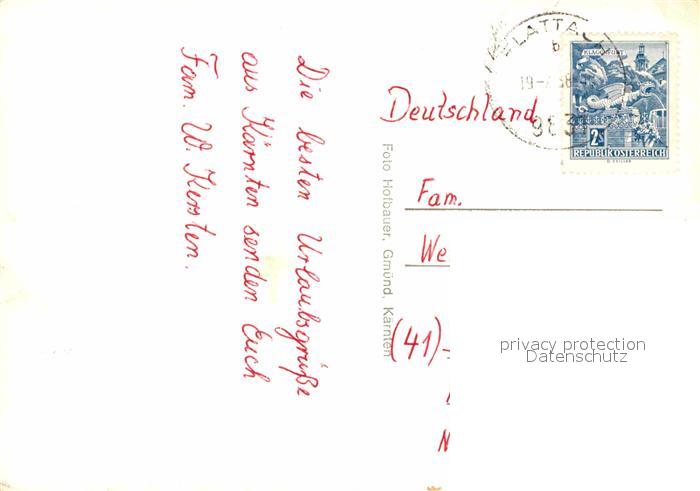 Die besten Urlaubsgrüße
aus Kärnten senden Euch
Fam. W. Kersten.
Foto Hofbauer, Gmünd, Kärnten
KLAGENFURT
2S
REPUBLIK ÖSTERREICH
Deutschland
Fam.
We
(41)-
privacy protection
Datenschutz